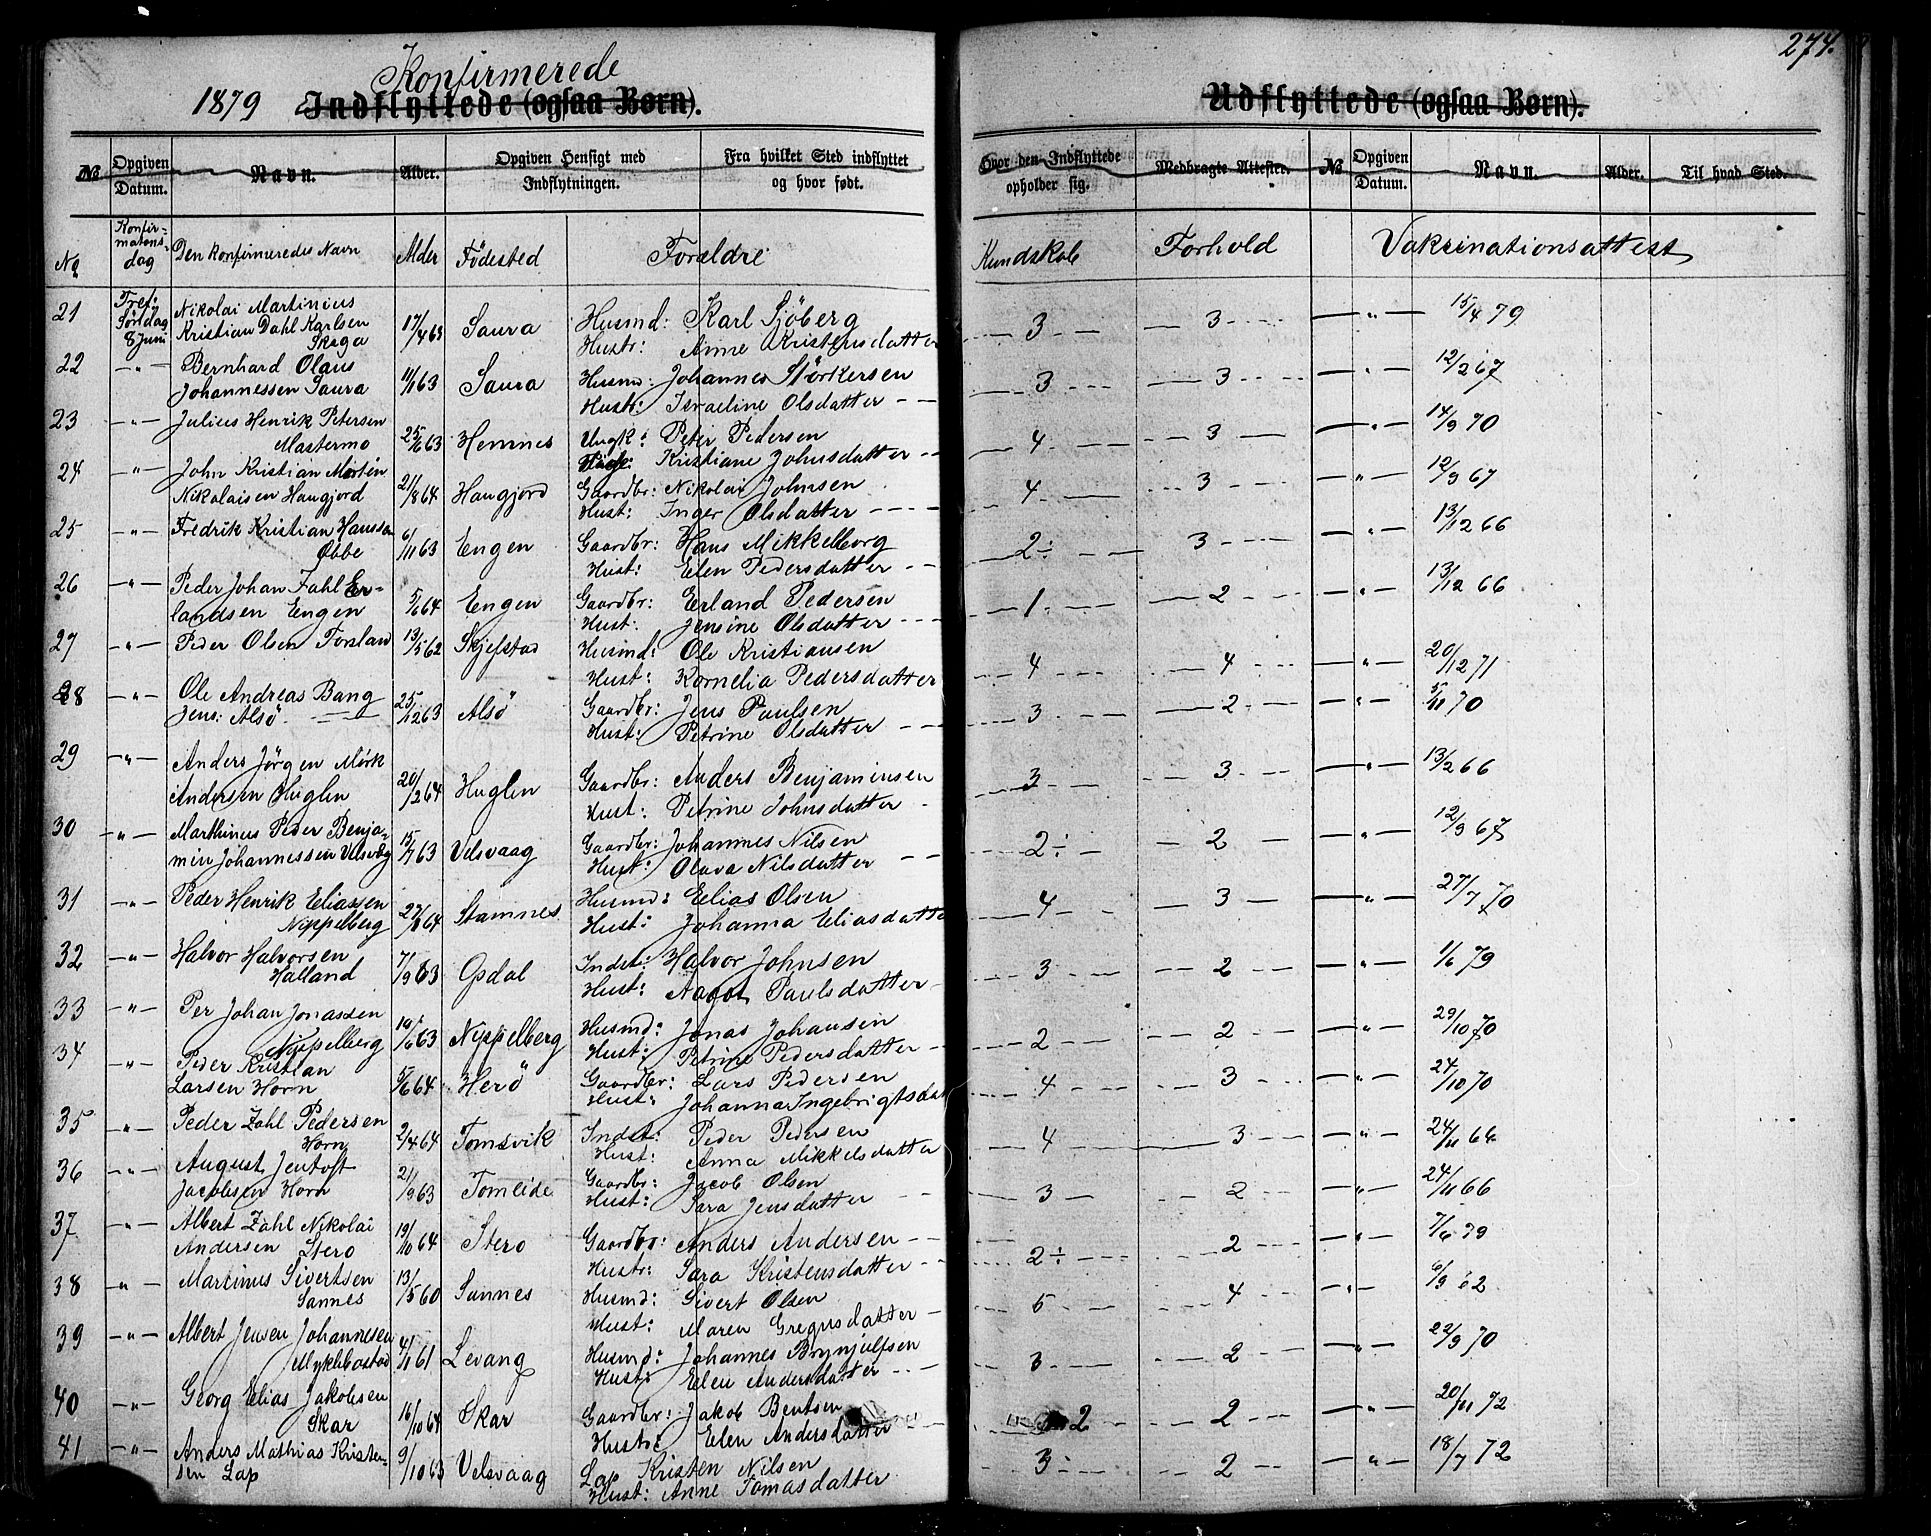 274.
Konfirmerede
1879 Indflyttede (ogsaa Børn). Udflyttede (ogsaa Børn).
No Opgiven Datum. Navn. Alder. Opgiven Hensigt med Indflytningen. Fra hvilket Sted indflyttet og hvor født. Hvor den Indflyttede opholder sig. Medbragte Attester. No Opgiven Datum. Navn. Alder. Til hvad Sted.
No Konfirmations-dag Den Konfirmeredes Navn Alder Födested Forældre Kundskab Forhold Vakcinationsattest
21 Tref. Nikolai Martinius
Söndag Kristian Dahl Karlsen 17/4 63 Saura Husmd: Karl Sjöberg 3 3 " 15/4 79
8 Juni Skaga Hustr: Anne Kristensdatter
22 " Bernhard Olaus Husmd: Johannes Störkersen 12/2 67
Johannessen Saura 11/1 63 Saura Hustr: Israeline Olsdatter 3 3 "
23 " Julius Henrik Petersen Ungk: Peter Pedersen 14/9 70
Mastermo 25/6 63 Hemnes Pige: Kristiane Johnsdatter 4 3 "
24 " John Kristian Mortin Gaardbr: Nikolai Johnsen 12/9 67
Nikolaisen Haugjord 21/8 64 Haugjord Hust: Inger Olsdatter 4 3 "
25 " Fredrik Kristian Hanssen Gaardbr: Hans Mikkelborg 13/12 66
Øbbe 6/11 63 Engen Hust: Elen Pedersdatter 2÷ 3 "
26 " Peder Johan Zahl Er- Gaardbr: Erland Pedersen 13/12 66
landsen Engen 5/6 64 Engen Hust: Jensine Olsdatter 1 2 "
27 " Peder Olsen Forsland 13/5 62 Skjefstad Husmd: Ole Kristiansen 4 4 " 20/12 71
Hust: Kornelia Pedersdatter
28 " Ole Andreas Bang Gaardbr: Jens Paulsen 5/11 70
Jens: Alsö 25/12 63 Alsö Hust: Petrine Olsdatter 3 2 "
29 " Anders Jörgen Mörk Gaardbr: Anders Benjaminsen 13/2 66
Andersen Huglen 20/2 64 Huglen Hust: Petrine Johnsdatter 3 3 "
30 " Marthinus Peder Benja- Gaardbr: Johannes Nilsen 12/9 67
min Johannessen Velsvåg 15/7 63 Velsvaag Hust: Olava Nilsdatter 2÷ 2 "
31 " Peder Henrik Eliassen Husmd: Elias Olsen 27/7 70
Nippelberg 27/8 64 Stamnes Hust: Johanna Eliasdatter 4 3 "
32 " Halvor Halvorsen Indst: Halvor Johnsen 1/6 79
Halland 7/9 63 Opdal Hust: Nagot Paulsdatter 3 2 "
33 " Per Johan Jonassen Husmd: Jonas Johansen 29/10 70
Nippelberg 10/6 63 Nippelberg Hust: Petrine Pedersdatter 2 2 "
34 " Peder Kristian Gaardbr: Lars Pedersen 24/10 70
Larsen Horn 5/6 64 Herö Hust: Johanna Ingebrigtsdat 4 3 "
35 " Peder Zahl Pedersen Indst: Peder Pedersen 24/11 64
Horn 2/4 64 Tomsvik Hust: Anna Mikkelsdatter 4 3 "
36 " August Jentoft Gaardbr: Jacob Olsen 24/11 66
Jacobsen Horn 21/9 63 Tomeide Hust: Sara Jensdatter 3 2 "
37 " Albert Zahl Nikolai Gaardbr: Anders Andersen 7/6 79
Andersen Stero 19/10 64 Stero Hustr: Sara Kristensdatter 2÷ 2 "
38 " Martinus Sivertsen Husmd: Sivert Olsen 6/9 62
Sannes 13/5 60 Sannes Hust: Maren Gregusdatter 5 4 "
39 " Albert Jensen Johannesen Husmd: Johannes Brynjulfsen 22/9 70
Myklebostad 4/1 61 Levang Hust: Elen Andersdatter 3 2 "
40 " Georg Elias Jakobsen Gaardbr: Jakob Bentsen 20/11 72
Skar 16/10 64 Skar Hustr: Elen Andersdatter 2 2 "
41 " Anders Mathias Kristen- Lap Kristen Nilsen 18/7 72
sen Lap 9/10 63 Velsvaag Hust: Anne Tomasdatter 3 2 "